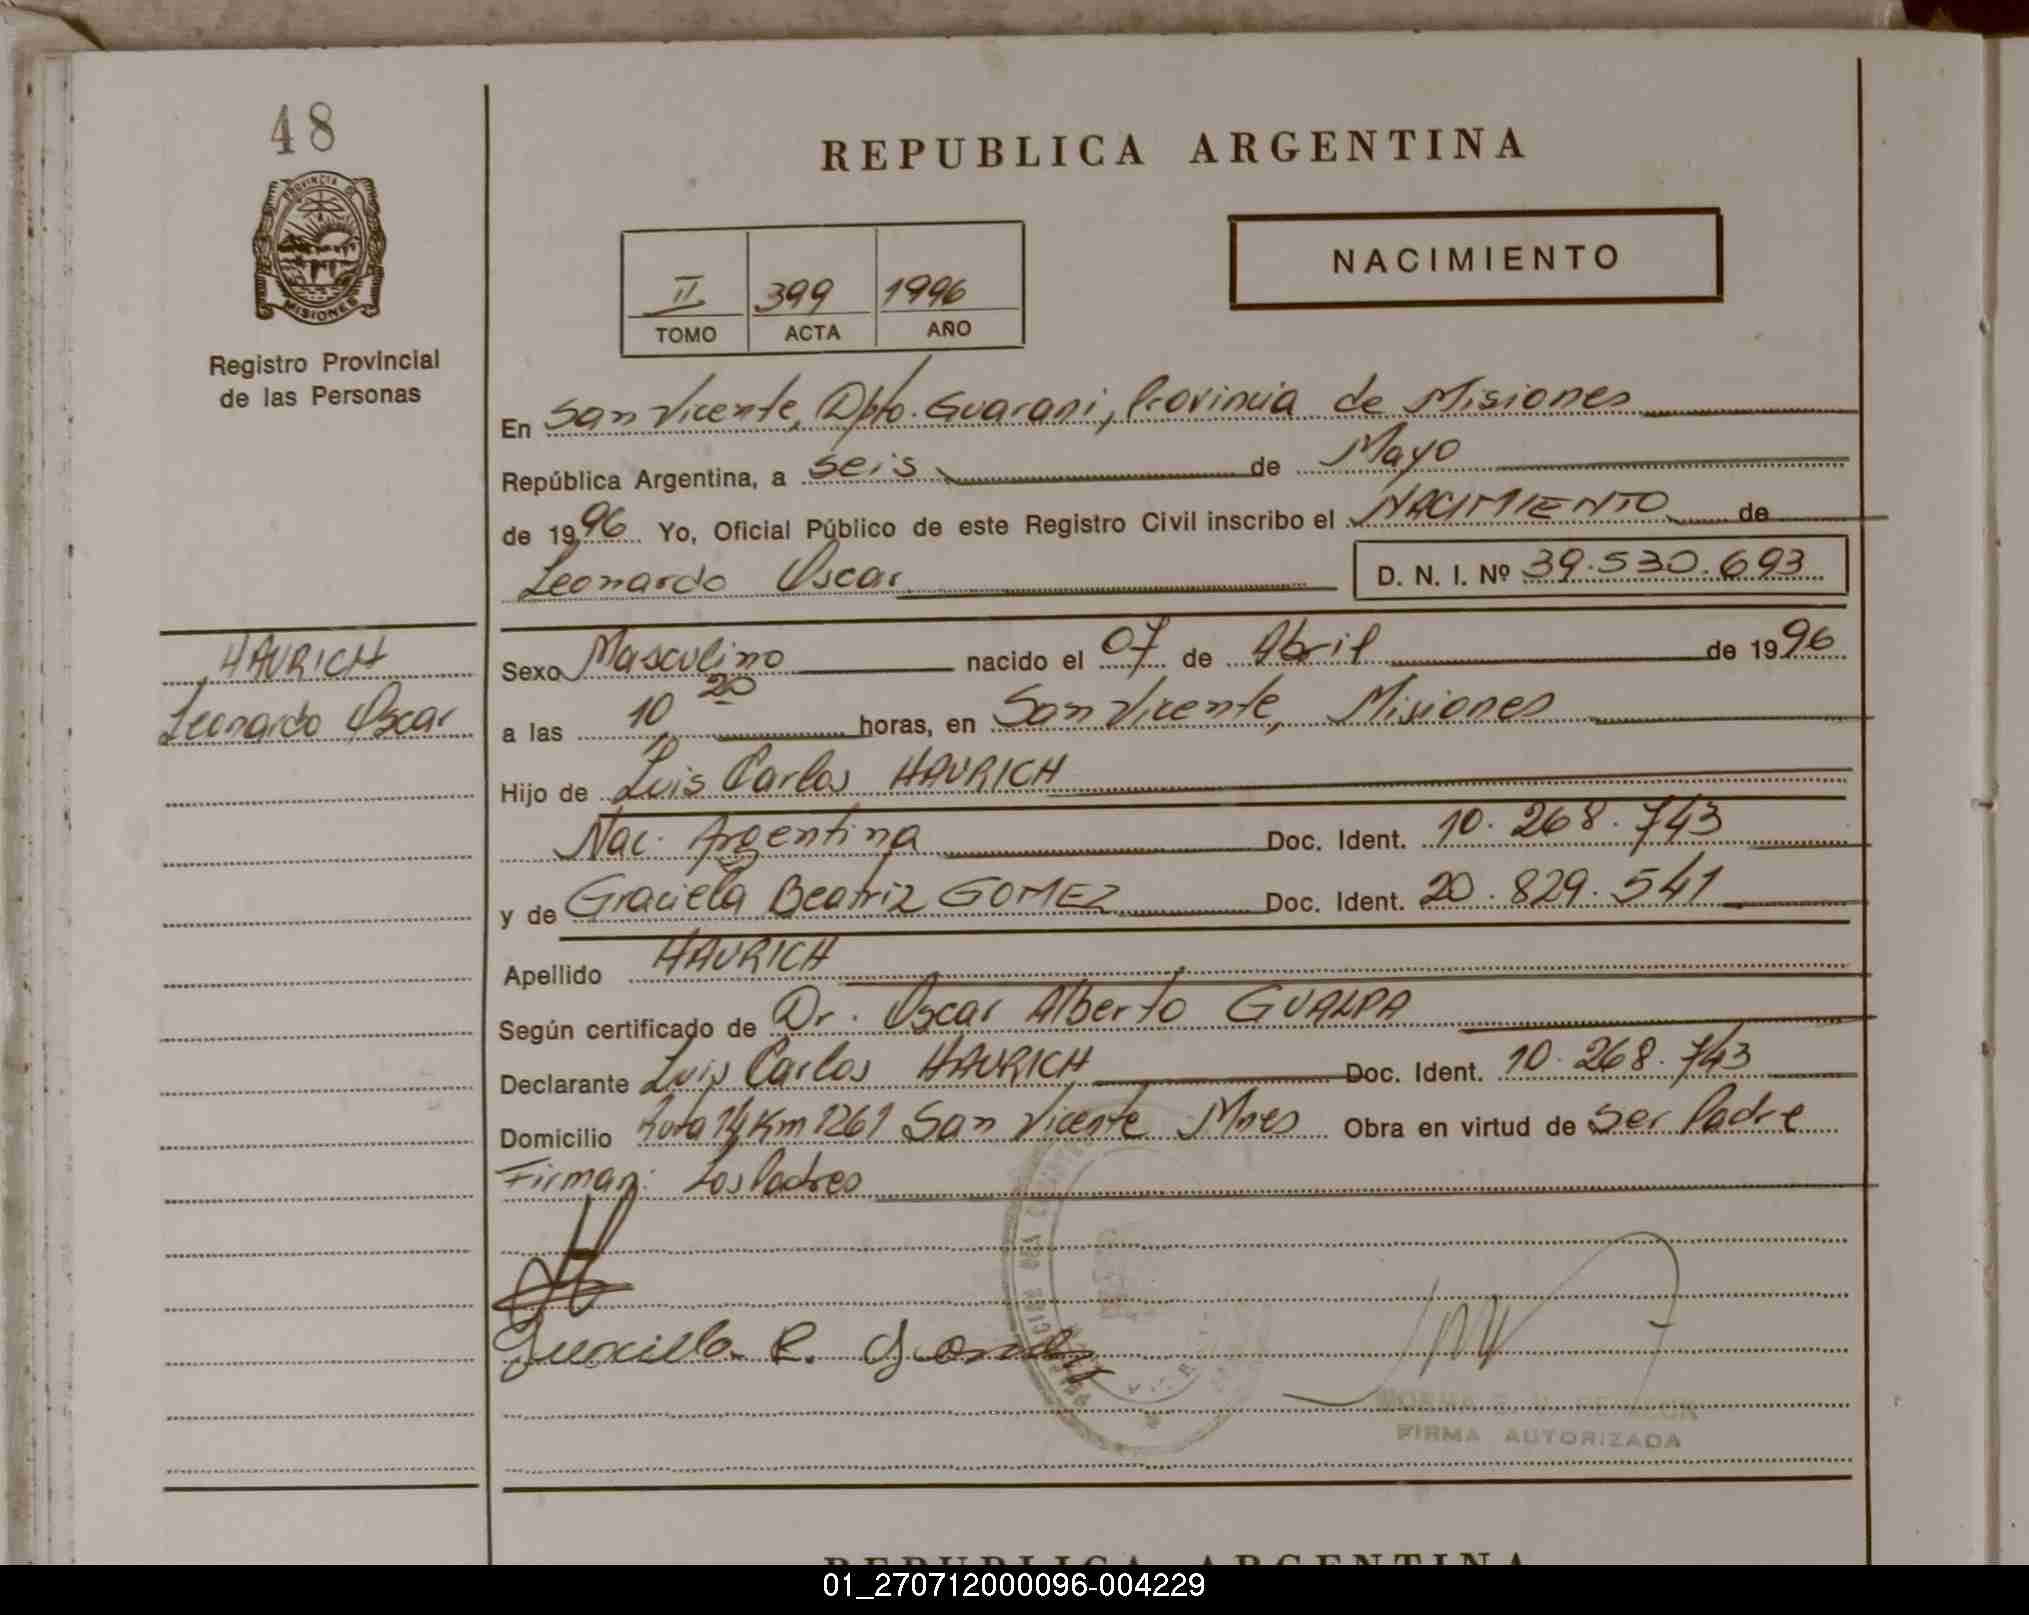 48
PROVINCIA DE
MISIONES
Registro Provincial
de las Personas
REPUBLICA ARGENTINA
NACIMIENTO
II 399 1996
TOMO ACTA AÑO
En San Vicente, Dpto. Guarani, Provincia de Misiones
República Argentina, a seis de Mayo
de 1996 Yo, Oficial Público de este Registro Civil inscribo el NACIMIENTO de
Leonardo Oscar D. N. I. Nº 39.530.693
HAURICH
Leonardo Oscar
Sexo Masculino nacido el 07 de Abril de 1996
a las 10 20 horas, en San Vicente, Misiones
Hijo de Luis Carlos HAURICH
Nac. Argentina Doc. Ident. 10.268.743
y de Graciela Beatriz GOMEZ Doc. Ident. 20.829.541
Apellido HAURICH
Según certificado de Dr. Oscar Alberto GUALPA
Declarante Luis Carlos HAURICH Doc. Ident. 10.268.743
Domicilio Ruta 14 Km 1261 San Vicente Mnes Obra en virtud de Ser Padre
Firman: Los Padres
FIRMA AUTORIZADA
REPUBLICA ARGENTINA
01_270712000096-004229